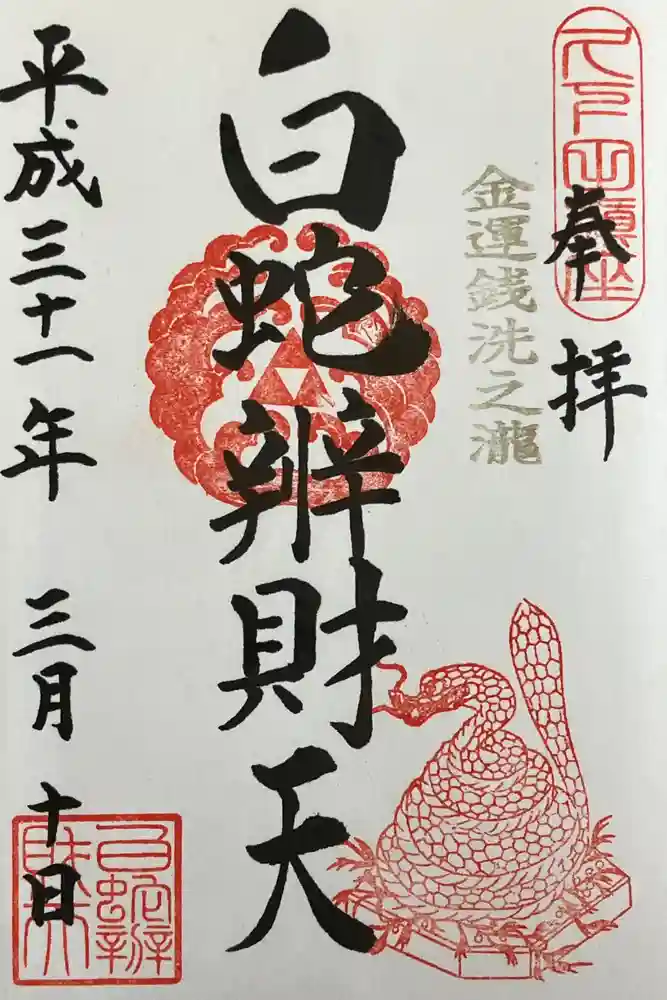 奉拝
金運銭洗之瀧
白蛇辨財天
平成三十一年 三月 十日
白蛇辨財天